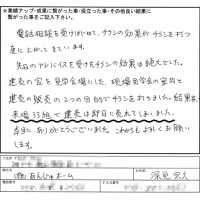 ★業績アップ・成果に繋がった事・役立った事・その他良い結果に
繋がった事をご記入下さい。
電話相談を受けはじめて、チラシの効果がチラシを打つ
度に上がってきています。
先日のアドバイスを受けたチラシの効果は絶大でした。
建売の家を見学会場にした、現場見学会の案内と
建売の販売の2つの目的でチラシを打ちました。結果は、
来場33組で建売は即日に売れてしまいました。
本当にありがとうございました。これからもよろしくお願い
します。
ご住所
ホーム